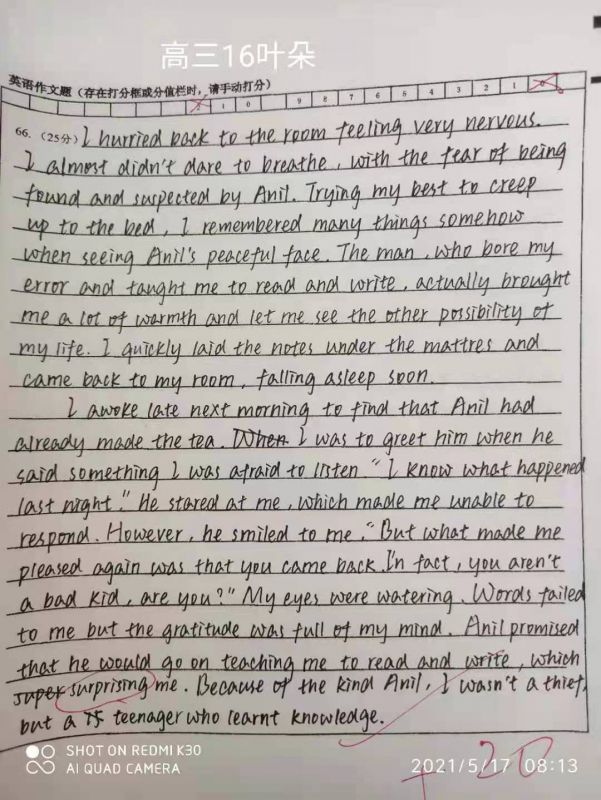 高三16叶朵
英语作文题（存在打分框或分值栏时，请手动打分）
2 1 0 9 8 7 6 5 4 3 2 1 0
66. (25分) I hurried back to the room feeling very nervous.
I almost didn't dare to breathe, with the fear of being
found and suspected by Anil. Trying my best to creep
up to the bed, I remembered many things somehow
when seeing Anil's peaceful face. The man, who bore my
error and taught me to read and write, actually brought
me a lot of warmth and let me see the other possibility of
my life. I quickly laid the notes under the mattres and
came back to my room, falling asleep soon.
I awoke late next morning to find that Anil had
already made the tea. When I was to greet him when he
said something I was afraid to listen. "I know what happened
last night." He stared at me, which made me unable to
respond. However, he smiled to me, "But what made me
pleased again was that you came back. In fact, you aren't
a bad kid, are you?" My eyes were watering. Words failed
to me but the gratitude was full of my mind. Anil promised
that he would go on teaching me to read and write, which
super surprising me. Because of the kind Anil, I wasn't a thief,
but a 15 teenager who learnt knowledge.
SHOT ON REDMI K30
AI QUAD CAMERA
2021/5/17 08:13
20